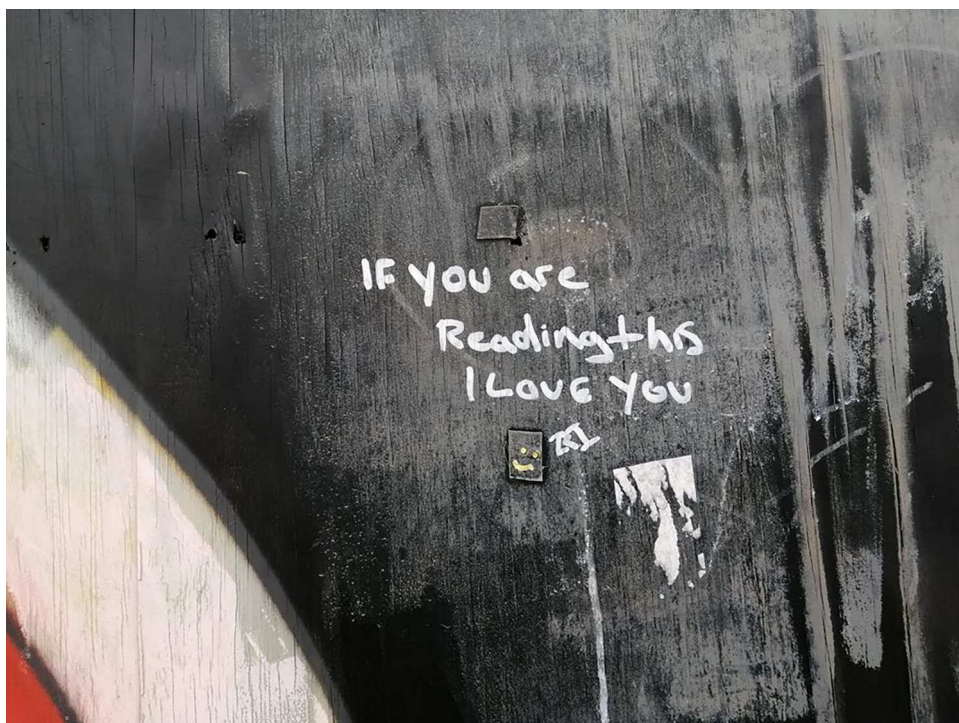 IF YOU are
Reading this
I LOVE YOU